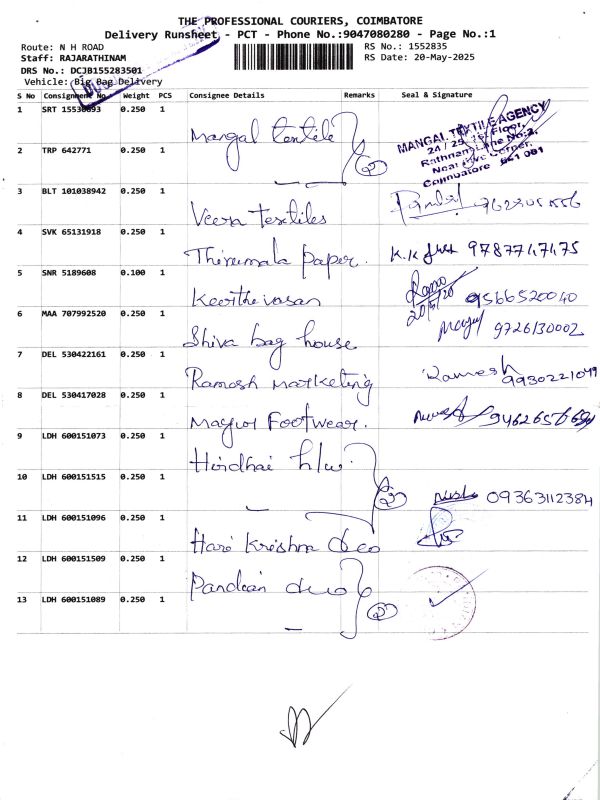 THE PROFESSIONAL COURIERS, COIMBATORE
Delivery Runsheet - PCT - Phone No.:9047080280 - Page No.:1
Route: N H ROAD RS No.: 1552835
Staff: RAJARATHINAM RS Date: 20-May-2025
DRS No.: DCJB155283501
Vehicle: Big Bag Delivery
S No Consignment No. Weight PCS Consignee Details Remarks Seal & Signature
1 SRT 0.250 1 Mangal textile
MANGAL TEXTILE AGENCY
24 / 25, 1st Floor,
Coimbatore 641 001
2 TRP 642771 0.250 1 — 2
3 BLT 101038942 0.250 1 Veera Textiles
4 SVK 65131918 0.250 1 Thirumala paper. K.K 9787747475
5 SNR 5189608 0.100 1 Keerthivasan 20/5/20 9566520040
6 MAA 707992520 0.250 1 Shiva bag house 9726130002
7 DEL 530422161 0.250 1 Ramesh Marketing Ramesh 9930221049
8 DEL 530417028 0.250 1 Mayur Footwear.
9 LDH 600151073 0.250 1 Hridhai h/w.
10 LDH 600151515 0.250 1 — 2 09363112384
11 LDH 600151096 0.250 1 Hari Krishna
12 LDH 600151509 0.250 1 Pandian
13 LDH 600151089 0.250 1 — 2